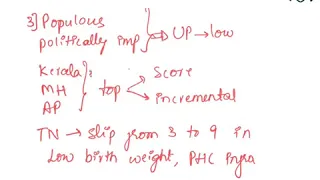 3] Populous
politically imp } ⇒ UP → low
Kerala
MH } top → Score
AP → incremental
TN → slip from 3 to 9 in
Low birth weight, PHC infra